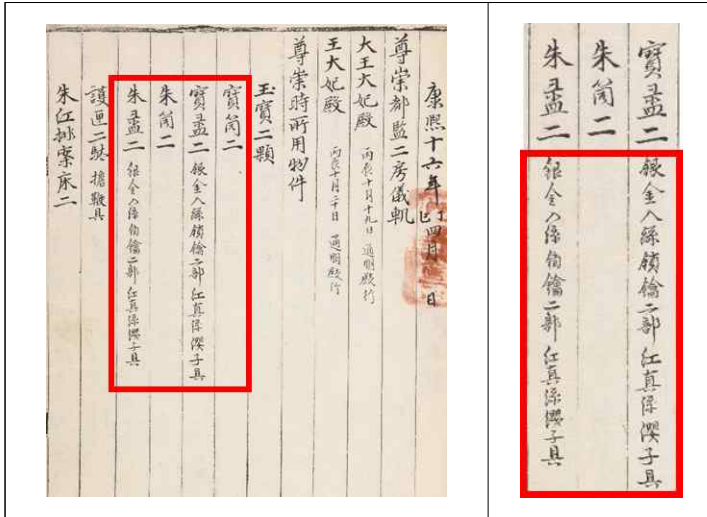 康熙十六年丁巳四月 日
尊崇都監二房儀軌
大王大妃殿 丙辰十月十九日 通明殿行
王大妃殿 丙辰十月二十日 通明殿行
尊崇時所用物件
玉寶二顆
寶筒二
寶盝二 銀金入絲鎖鑰二部紅真絲纓子具
朱筒二
朱盝二 銀金入絲鎖鑰二部紅真絲纓子具
護匣二駄 擔鞭具
朱紅排案床二
寶盝二 銀金入絲鎖鑰二部紅真絲纓子具
朱筒二
朱盝二 銀金入絲鎖鑰二部紅真絲纓子具